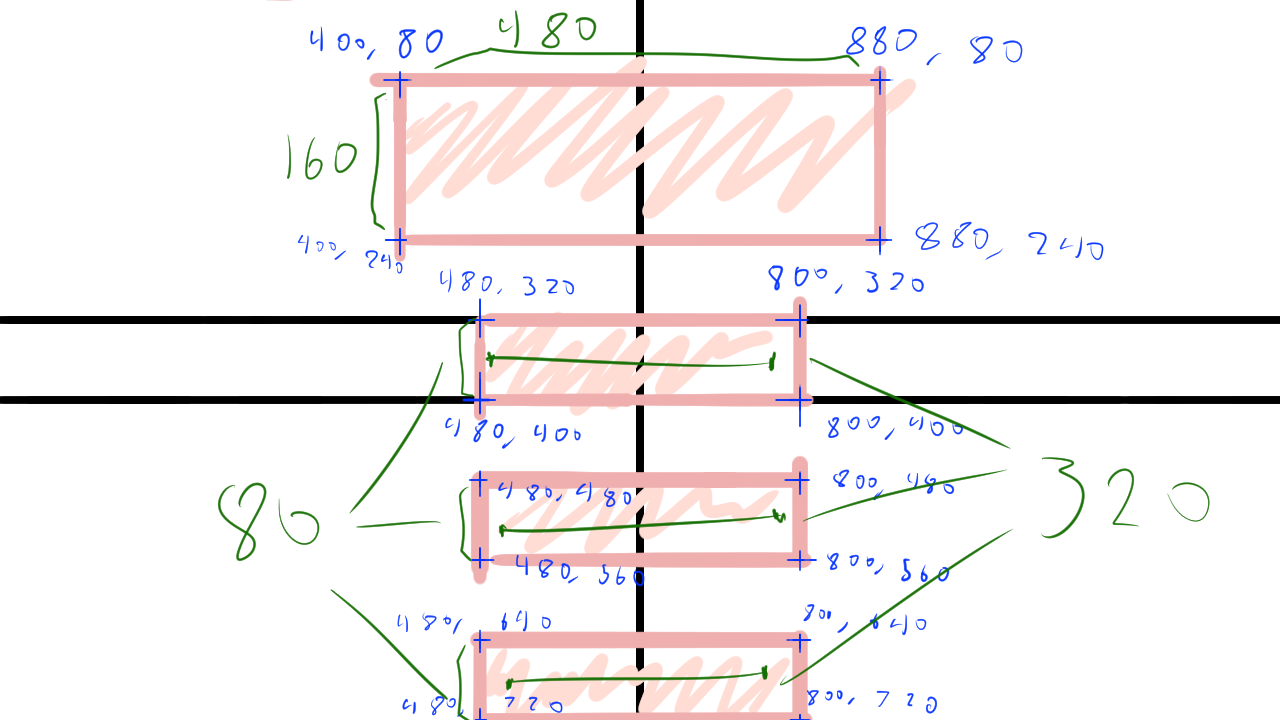 480
400, 80
880, 80
160
400, 240
880, 240
480, 320
800, 320
480, 400
800, 400
80
320
480, 480
800, 480
480, 560
800, 560
480, 640
800, 640
480, 720
800, 720